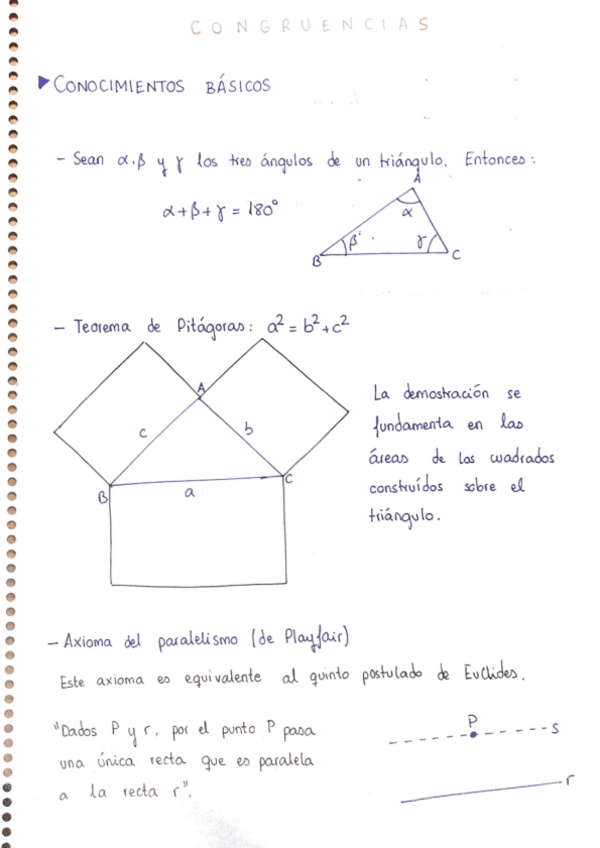 CONGRUENCIAS
▶ CONOCIMIENTOS BÁSICOS
- Sean α, β y γ los tres ángulos de un triángulo. Entonces:
α+β+γ = 180°
A
α
β
γ
B
C
- Teorema de Pitágoras: a² = b² + c²
A
c
b
B
a
C
La demostración se
fundamenta en las
áreas de los cuadrados
construídos sobre el
triángulo.
- Axioma del paralelismo (de Playfair)
Este axioma es equivalente al quinto postulado de Euclides.
"Dados P y r, por el punto P pasa
una única recta que es paralela
a la recta r".
P
s
r